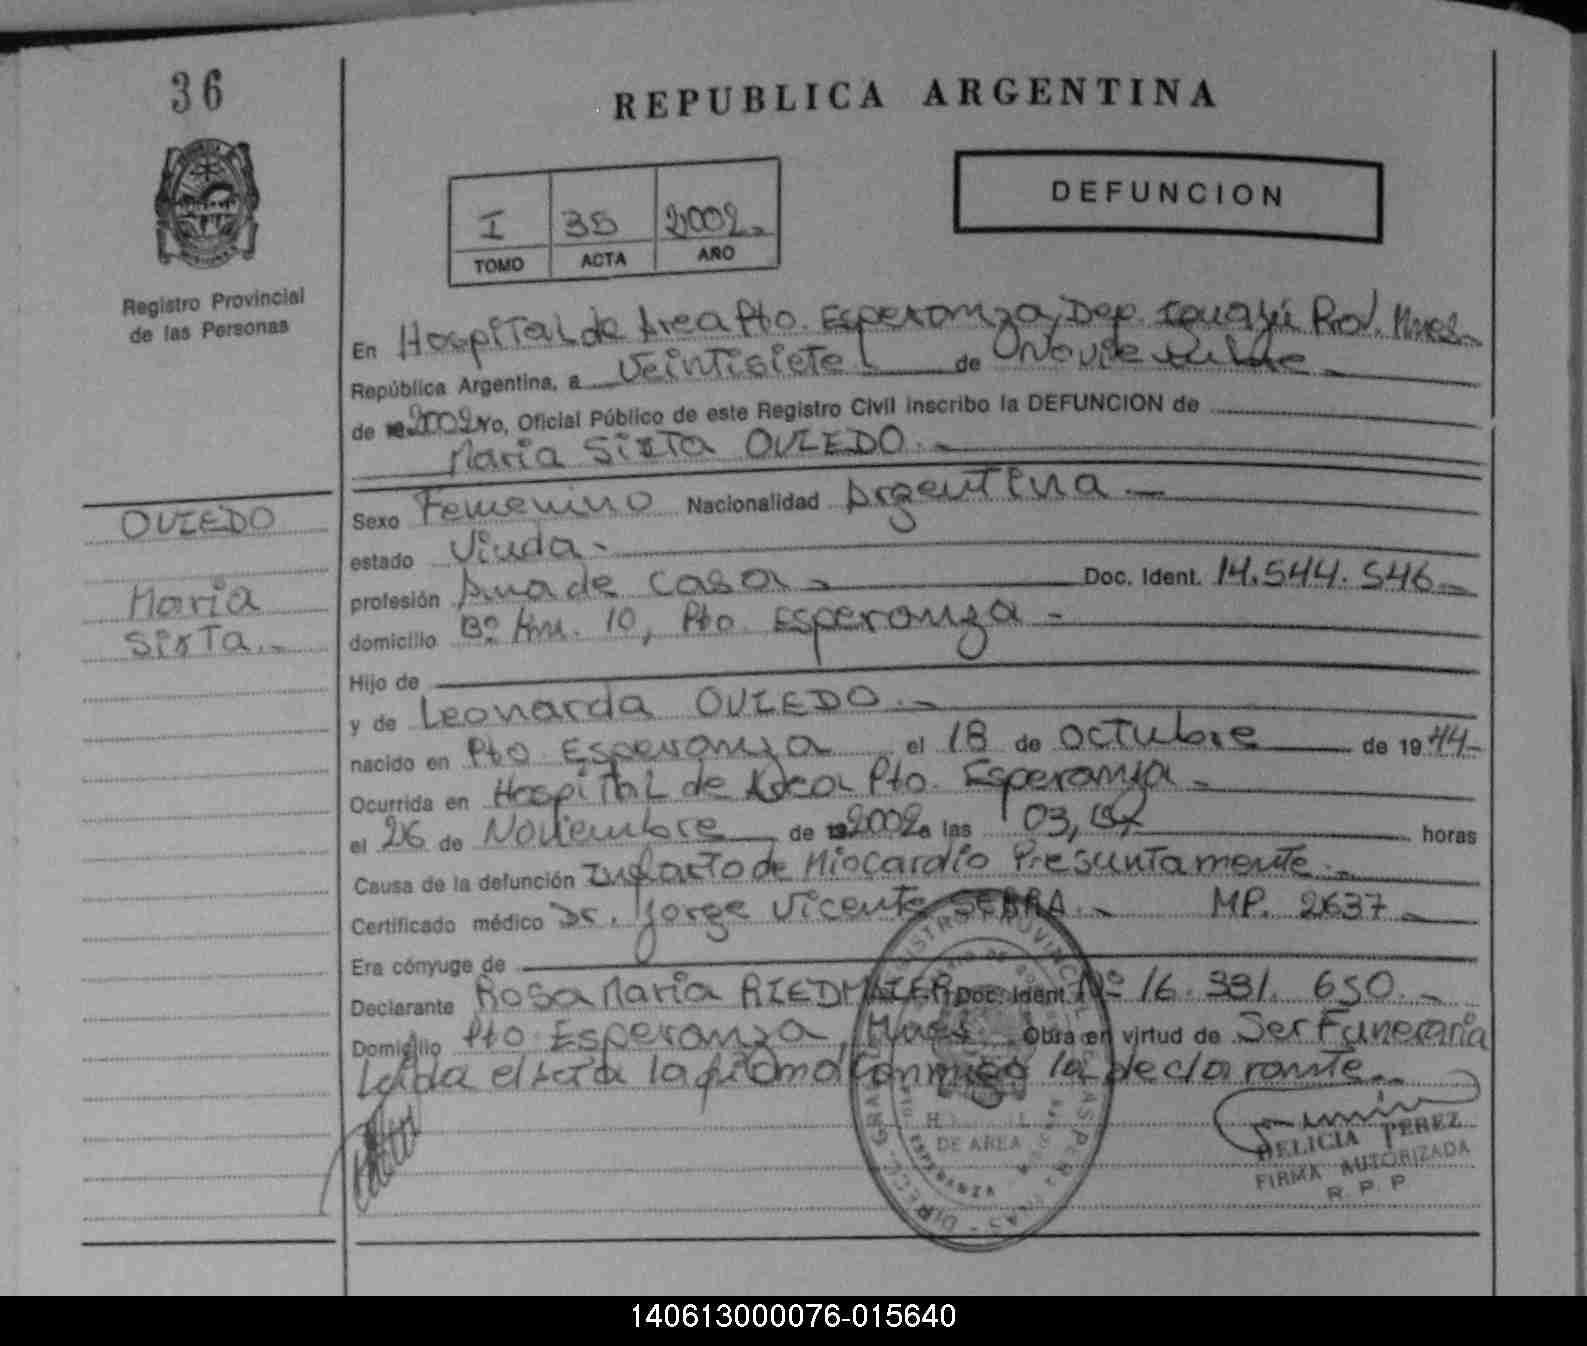 36
REPUBLICA ARGENTINA
DEFUNCION
I 35 2002.
TOMO ACTA AÑO
Registro Provincial
de las Personas
En Hospital de Area Pto. Esperanza, Dep. Iguazú Prov. Mnes.
República Argentina, a Veintisiete de Noviembre
de 2002 yo, Oficial Público de este Registro Civil inscribo la DEFUNCION de
Maria Sixta OVIEDO.
OVIEDO
Maria
Sixta.
Sexo Femenino Nacionalidad Argentina
estado Viuda
profesión Ama de casa Doc. Ident. 14.544.546
domicilio Bº Km. 10, Pto. Esperanza
Hijo de
y de Leonarda OVIEDO.
nacido en Pto Esperanza el 18 de octubre de 1944
Ocurrida en Hospital de Area Pto. Esperanza
el 26 de Noviembre de 2002 a las 03, horas
Causa de la defunción Infarto de Miocardio Presuntamente.
Certificado médico Dr. Jorge Vicente SEBRA. MP. 2637
Era cónyuge de
Declarante Rosa Maria RIEDMAIER Doc. Ident. Nº 16.331.650.
Domicilio Pto Esperanza, Mnes Obra en virtud de Ser Funeraria
Leida el acta la firma conmigo la declarante.
DIRECC. GRAL. REGISTRO PROVINCIAL DE LAS PERSONAS
DE AREA
ESPERANZA
DELICIA PEREZ
FIRMA AUTORIZADA
R. P. P.
140613000076-015640